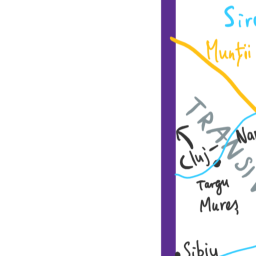 Sir
Munții
TRANSI
Na
Cluj-
Targu
Mureș
Sibiu